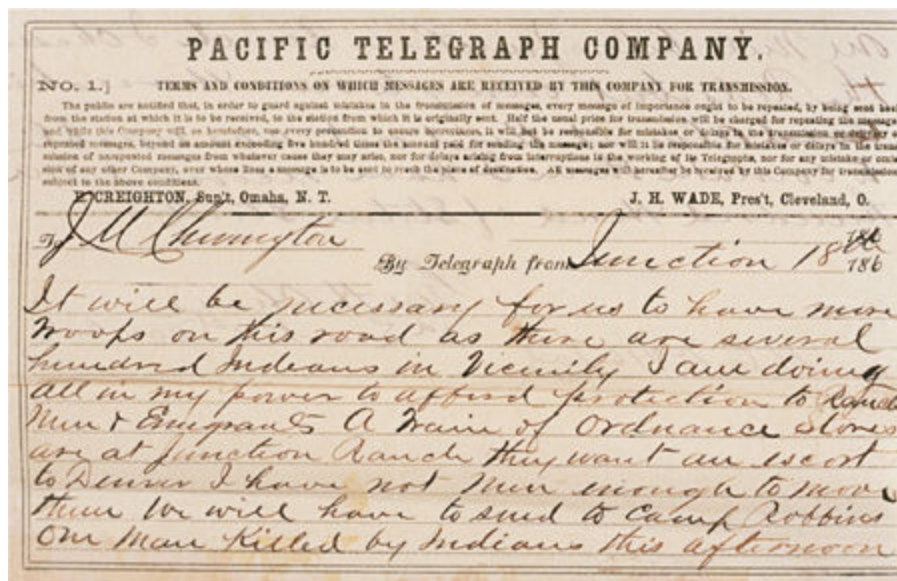 PACIFIC TELEGRAPH COMPANY.
NO. 1.] TERMS AND CONDITIONS ON WHICH MESSAGES ARE RECEIVED BY THIS COMPANY FOR TRANSMISSION.
The public are notified that, in order to guard against mistakes in the transmission of messages, every message of importance ought to be repeated, by being sent back
from the station at which it is to be received, to the station from which it is originally sent. Half the usual price for transmission will be charged for repeating the message
and while this Company will as heretofore, use every precaution to ensure correctness, it will not be responsible for mistakes or delays in the transmission or delivery of
repeated messages, beyond an amount exceeding five hundred times the amount paid for sending the message; nor will it be responsible for mistakes or delays in the trans
mission of unrepeated messages from whatever cause they may arise, nor for delays arising from interruptions in the working of its Telegraphs, nor for any mistake or omis
sion of any other Company, over whose lines a message is to be sent to reach the place of destination. All messages will hereafter be received by this Company for transmission
subject to the above conditions.
E. CREIGHTON, Sup't, Omaha, N. T. J. H. WADE, Pres't, Cleveland, O.
To J M Chivington
By Telegraph from Junction 18 186
It will be necessary for us to have more
troops on this road as there are several
hundred Indians in Vicinity I am doing
all in my power to afford protection to Ranch
Men & Emigrants A Train of Ordnance Stores
are at Junction Ranch they want an escort
to Denver I have not men enough to move
them We will have to send to Camp Robbins
One Man Killed by Indians this afternoon